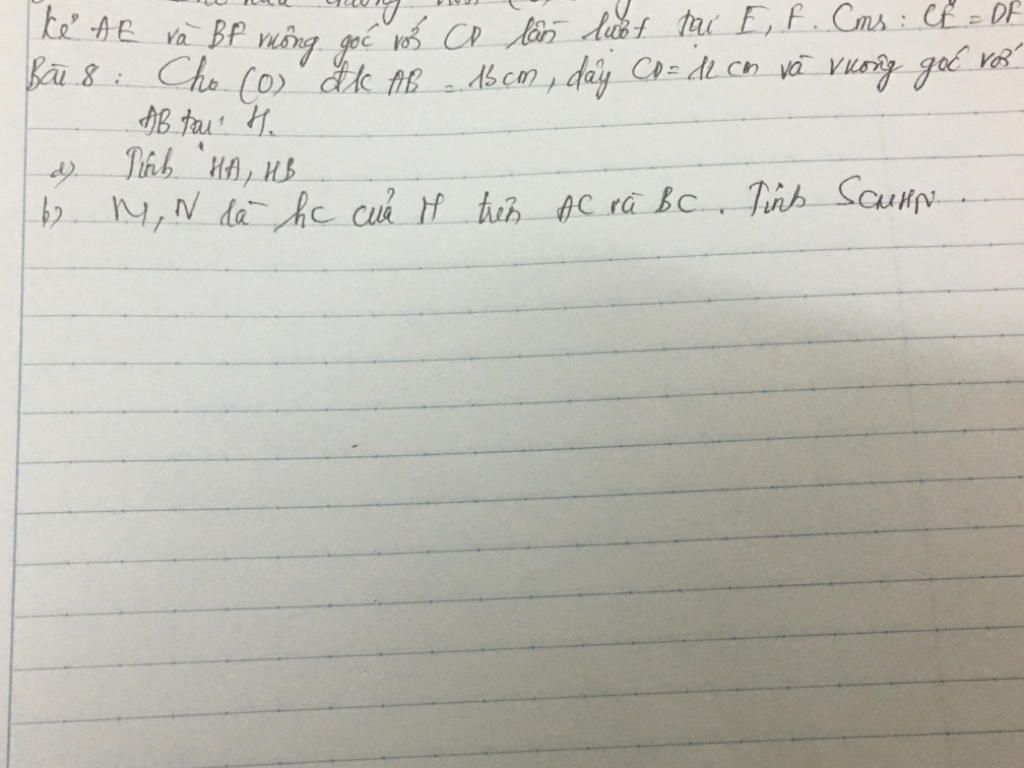 kẻ AE và BF vuông góc với CD lần lượt tại E, F. Cms: CE = DF
Bài 8: Cho (O) đk AB = 13 cm, dây CD = 12 cm và vuông góc với
AB tại H.
a) Tính HA, HB
b) M, N là hc của H trên AC và BC. Tính SCMHN.